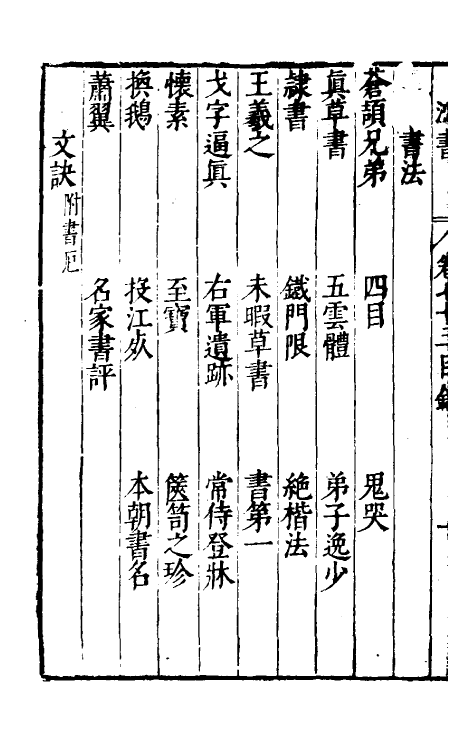 書法
蒼頡兄弟 四目 鬼哭
眞草書 五雲體 弟子逸少
隷書 鐵門限 絶楷法
王羲之 未暇草書 書第一
戈字逼眞 右軍遺跡 常侍登牀
懷素 至寶 篋笥之珍
換鵝 投江㳄 本朝書名
蕭翼 名家書評
文訣附書厄